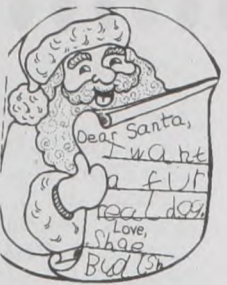 Dear Santa,
I want
a fur
real dog.
Love,
Shae